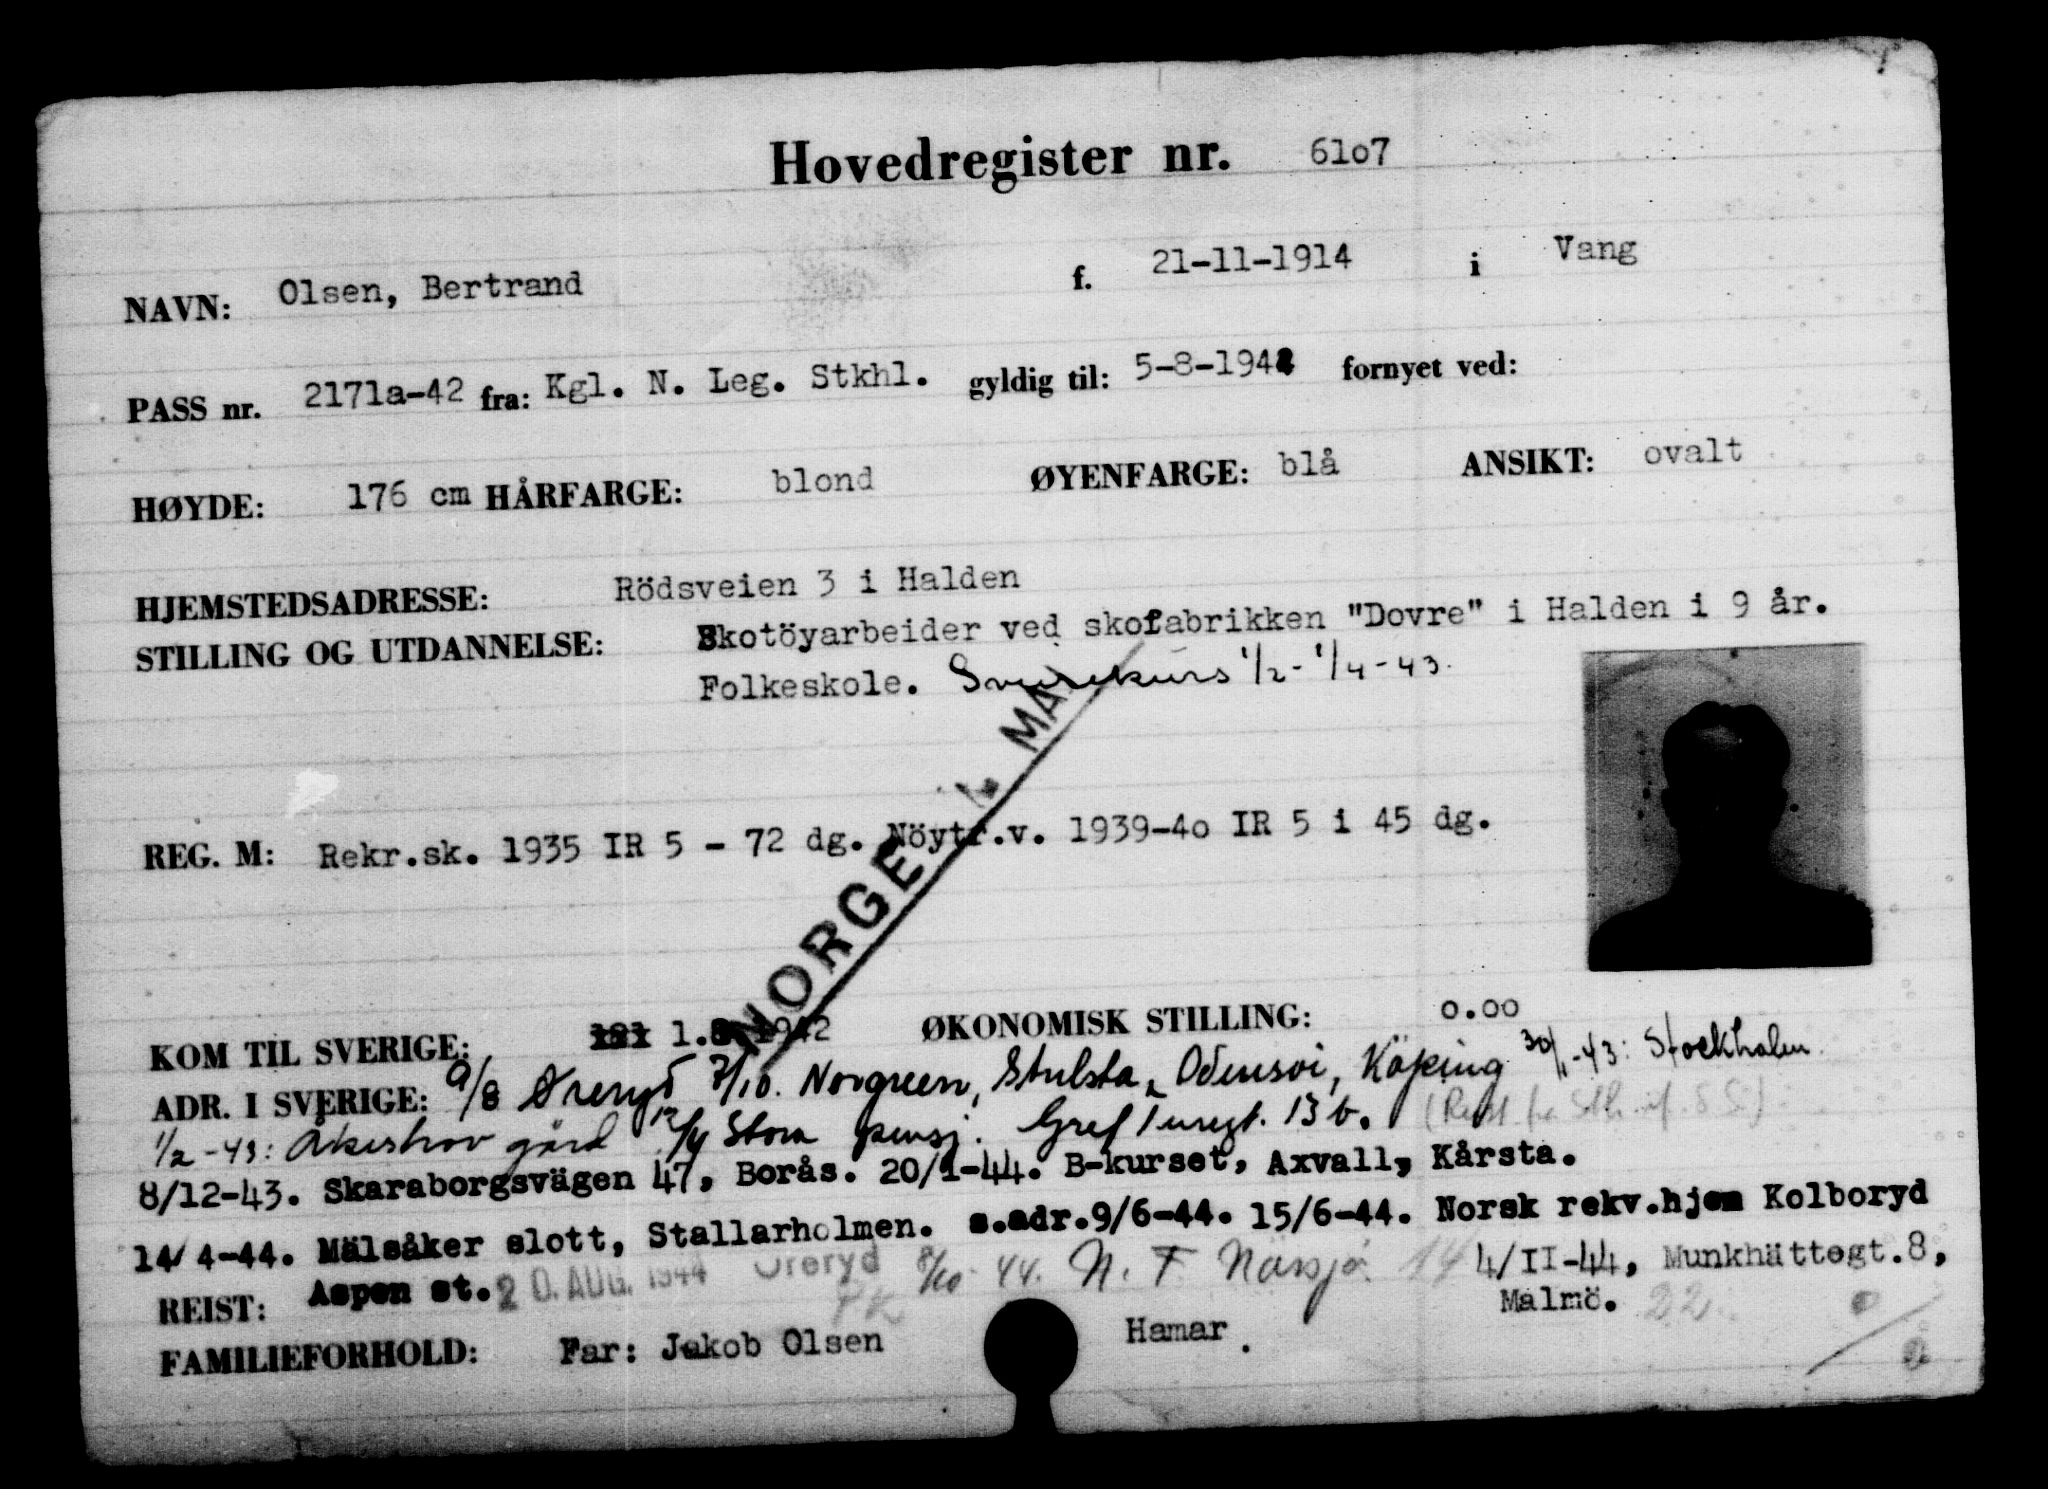 Hovedregister nr. 61o7
NAVN: Olsen, Bertrand f. 21-11-1914 i Vang
PASS nr. 2171a-42 fra: Kgl. N. Leg. Stkhl. gyldig til: 5-8-1944 fornyet ved:
HØYDE: 176 cm HÅRFARGE: blond ØYENFARGE: blå ANSIKT: ovalt
HJEMSTEDSADRESSE: Rödsveien 3 i Halden
STILLING OG UTDANNELSE: Skotöyarbeider ved skofabrikken "Dovre" i Halden i 9 år.
Folkeskole. 1/2 - 1/4 - 43.
NORGE 1. MA
REG. M: Rekr.sk. 1935 IR 5 - 72 dg. Nöytr.v. 1939-4o IR 5 i 45 dg.
KOM TIL SVERIGE: 1.8.1942 ØKONOMISK STILLING: o.oo
ADR. I SVERIGE: 9/8 Øreryd 7/10. Norgreen, Stulsta, Odensvi, Köping 30/1-43: Stockholm.
1/2-43: Åkeshov gård 12/4 Stora pensj. Gref Turegt. 13 b.
8/12-43. Skaraborgsvägen 47, Borås. 20/1-44. B-kurset, Axvall, Kårsta.
14/4-44. Mälsåker slott, Stallarholmen. s.adr.9/6-44. 15/6-44. Norsk rekv.hjem Kolboryd
Aspen st. 20. AUG. 1944 Öreryd 8/10-44. N. F. Nässjö. 14 4/II-44, Munkhättegt.8,
REIST: PK Malmö. 22.
FAMILIEFORHOLD: Far: Jakob Olsen Hamar.